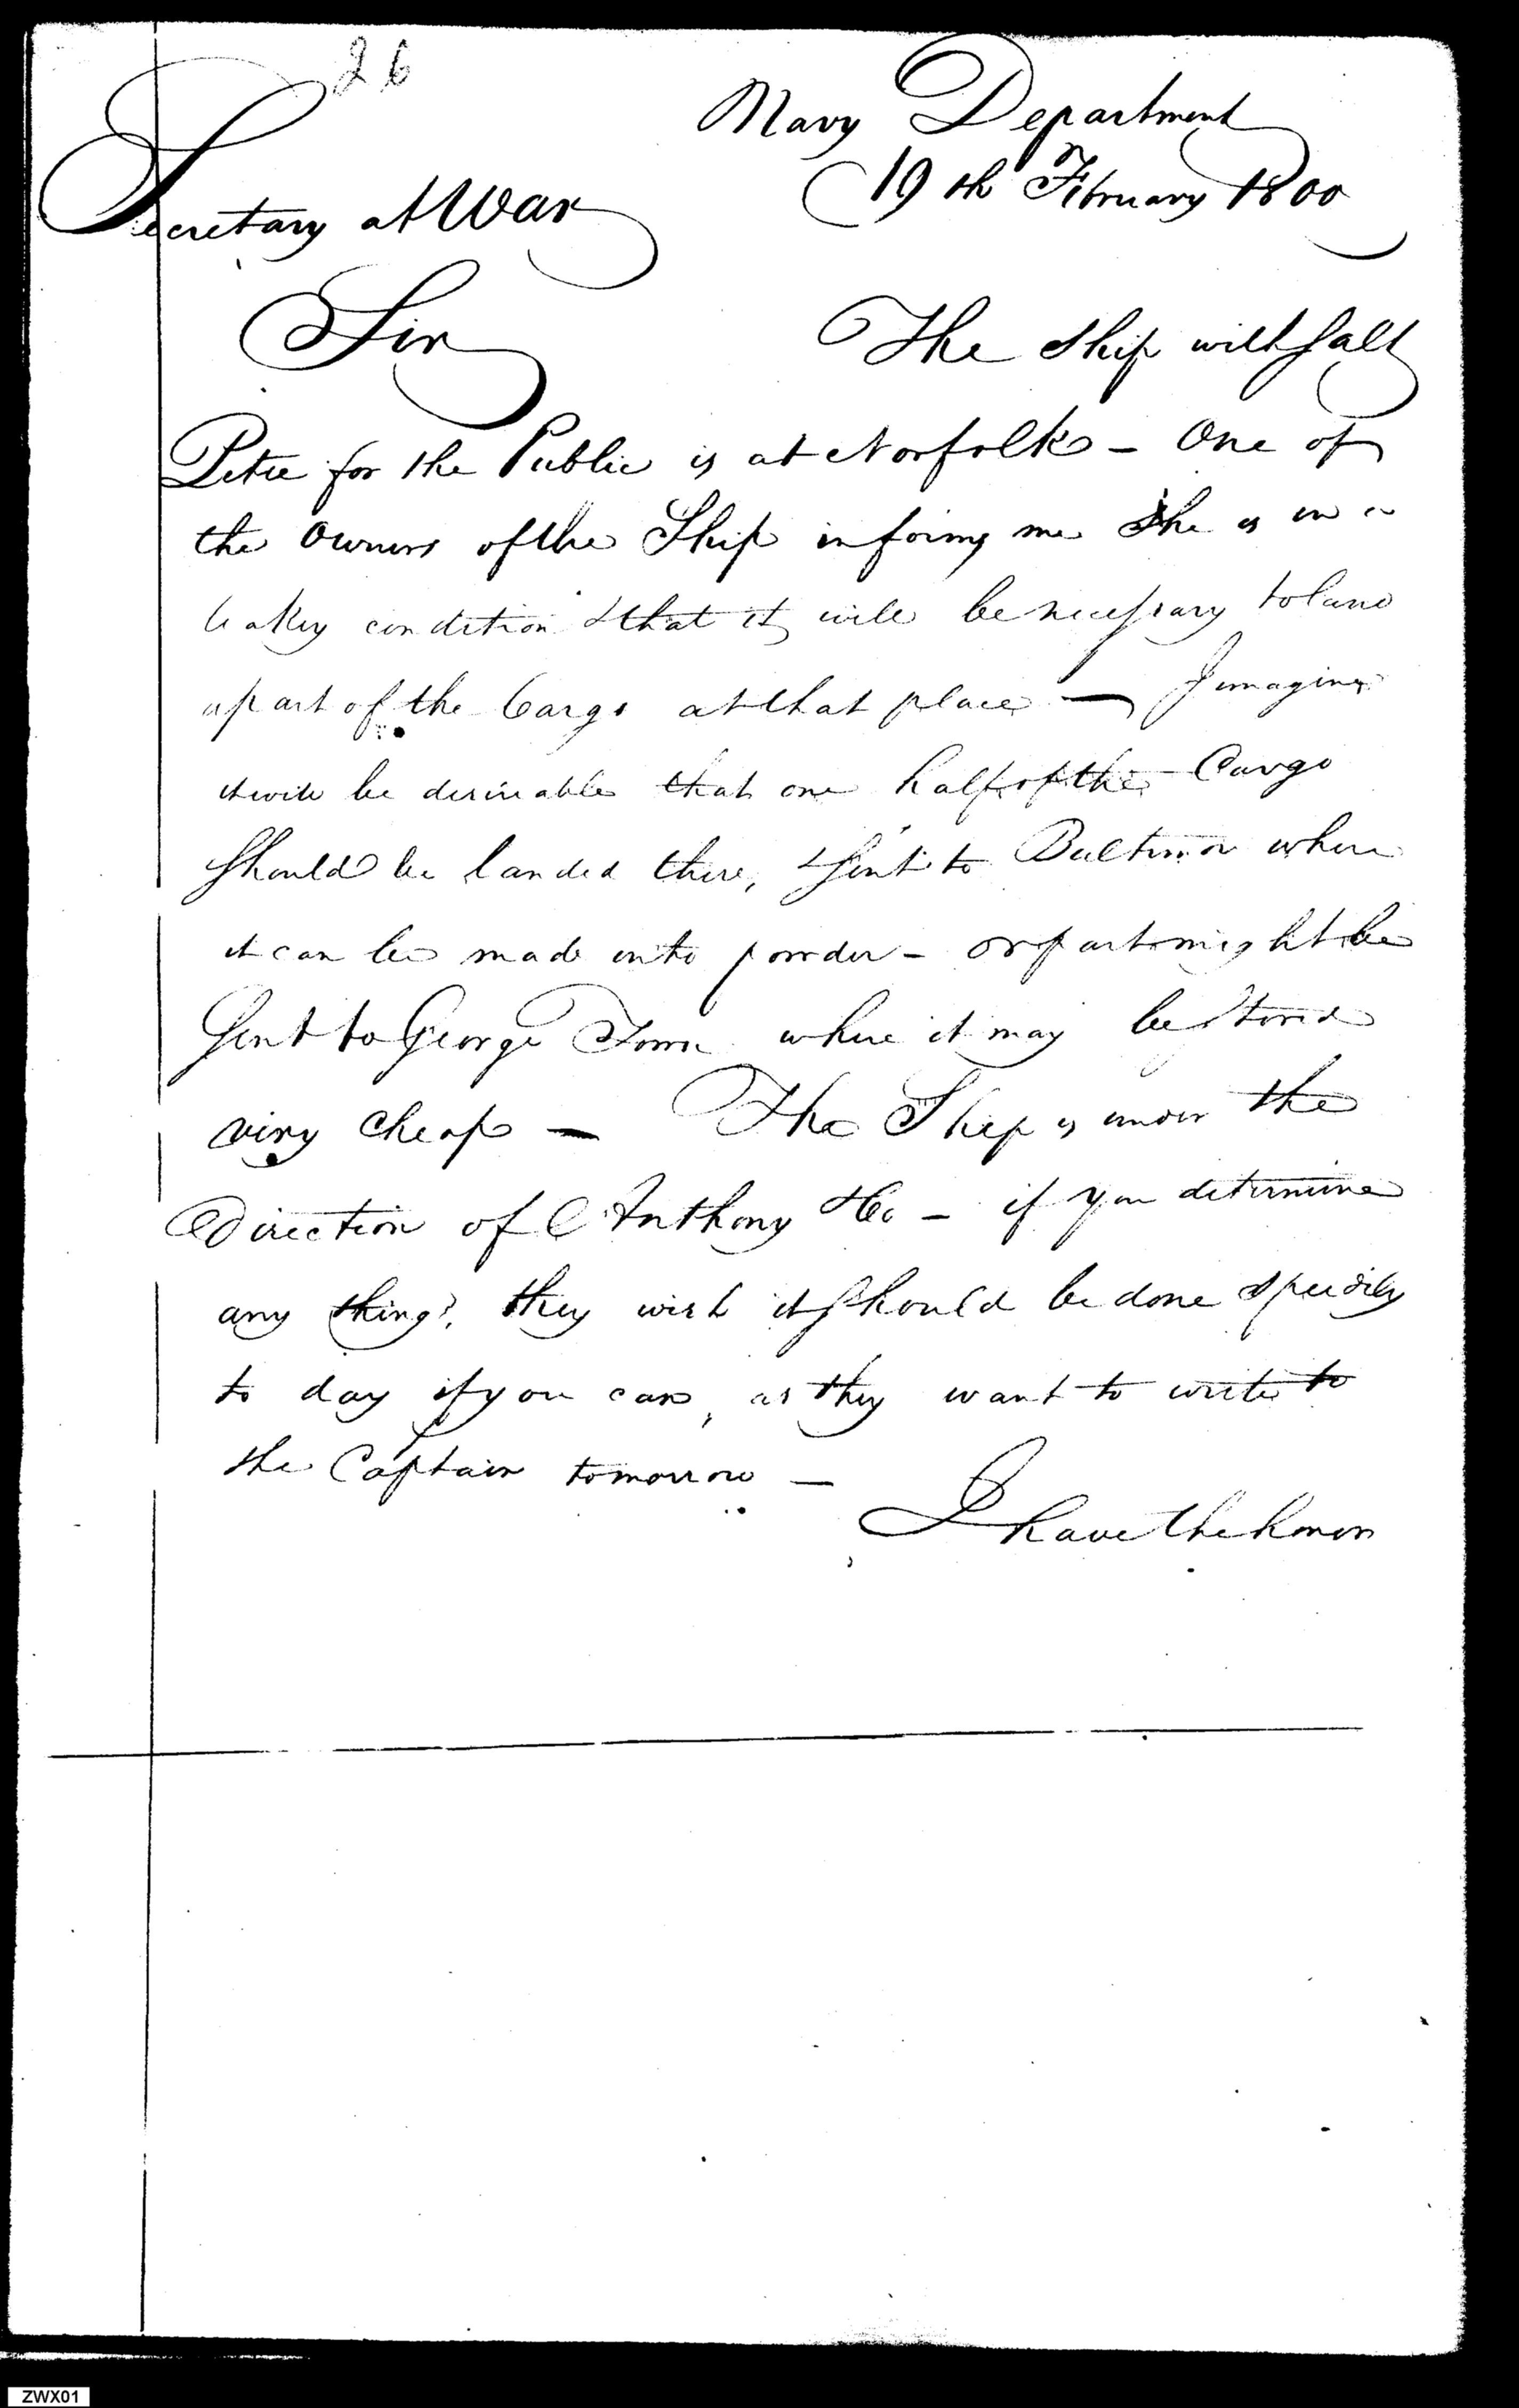 26
Navy Department
19th February 1800
Secretary at War
Sir
The Ship with Salt
Petre for the Public is at Norfolk – One of
the Owners of the Ship informs me She is in a
leaky condition & that it will be necessary to land
a part of the Cargo at that place — I imagine
it will be desireable that one half of the Cargo
Should be landed there, & Sent to Baltimor where
it can be made into powder – or part might be
Sent to George Town where it may be Stored
very cheap — The Ship is under the
Direction of Anthony & Co – if you determine
any thing, they wish it Should be done speedily
to day if you can, as they want to write to
the Captain tomorrow —
I have the honor
ZWX01